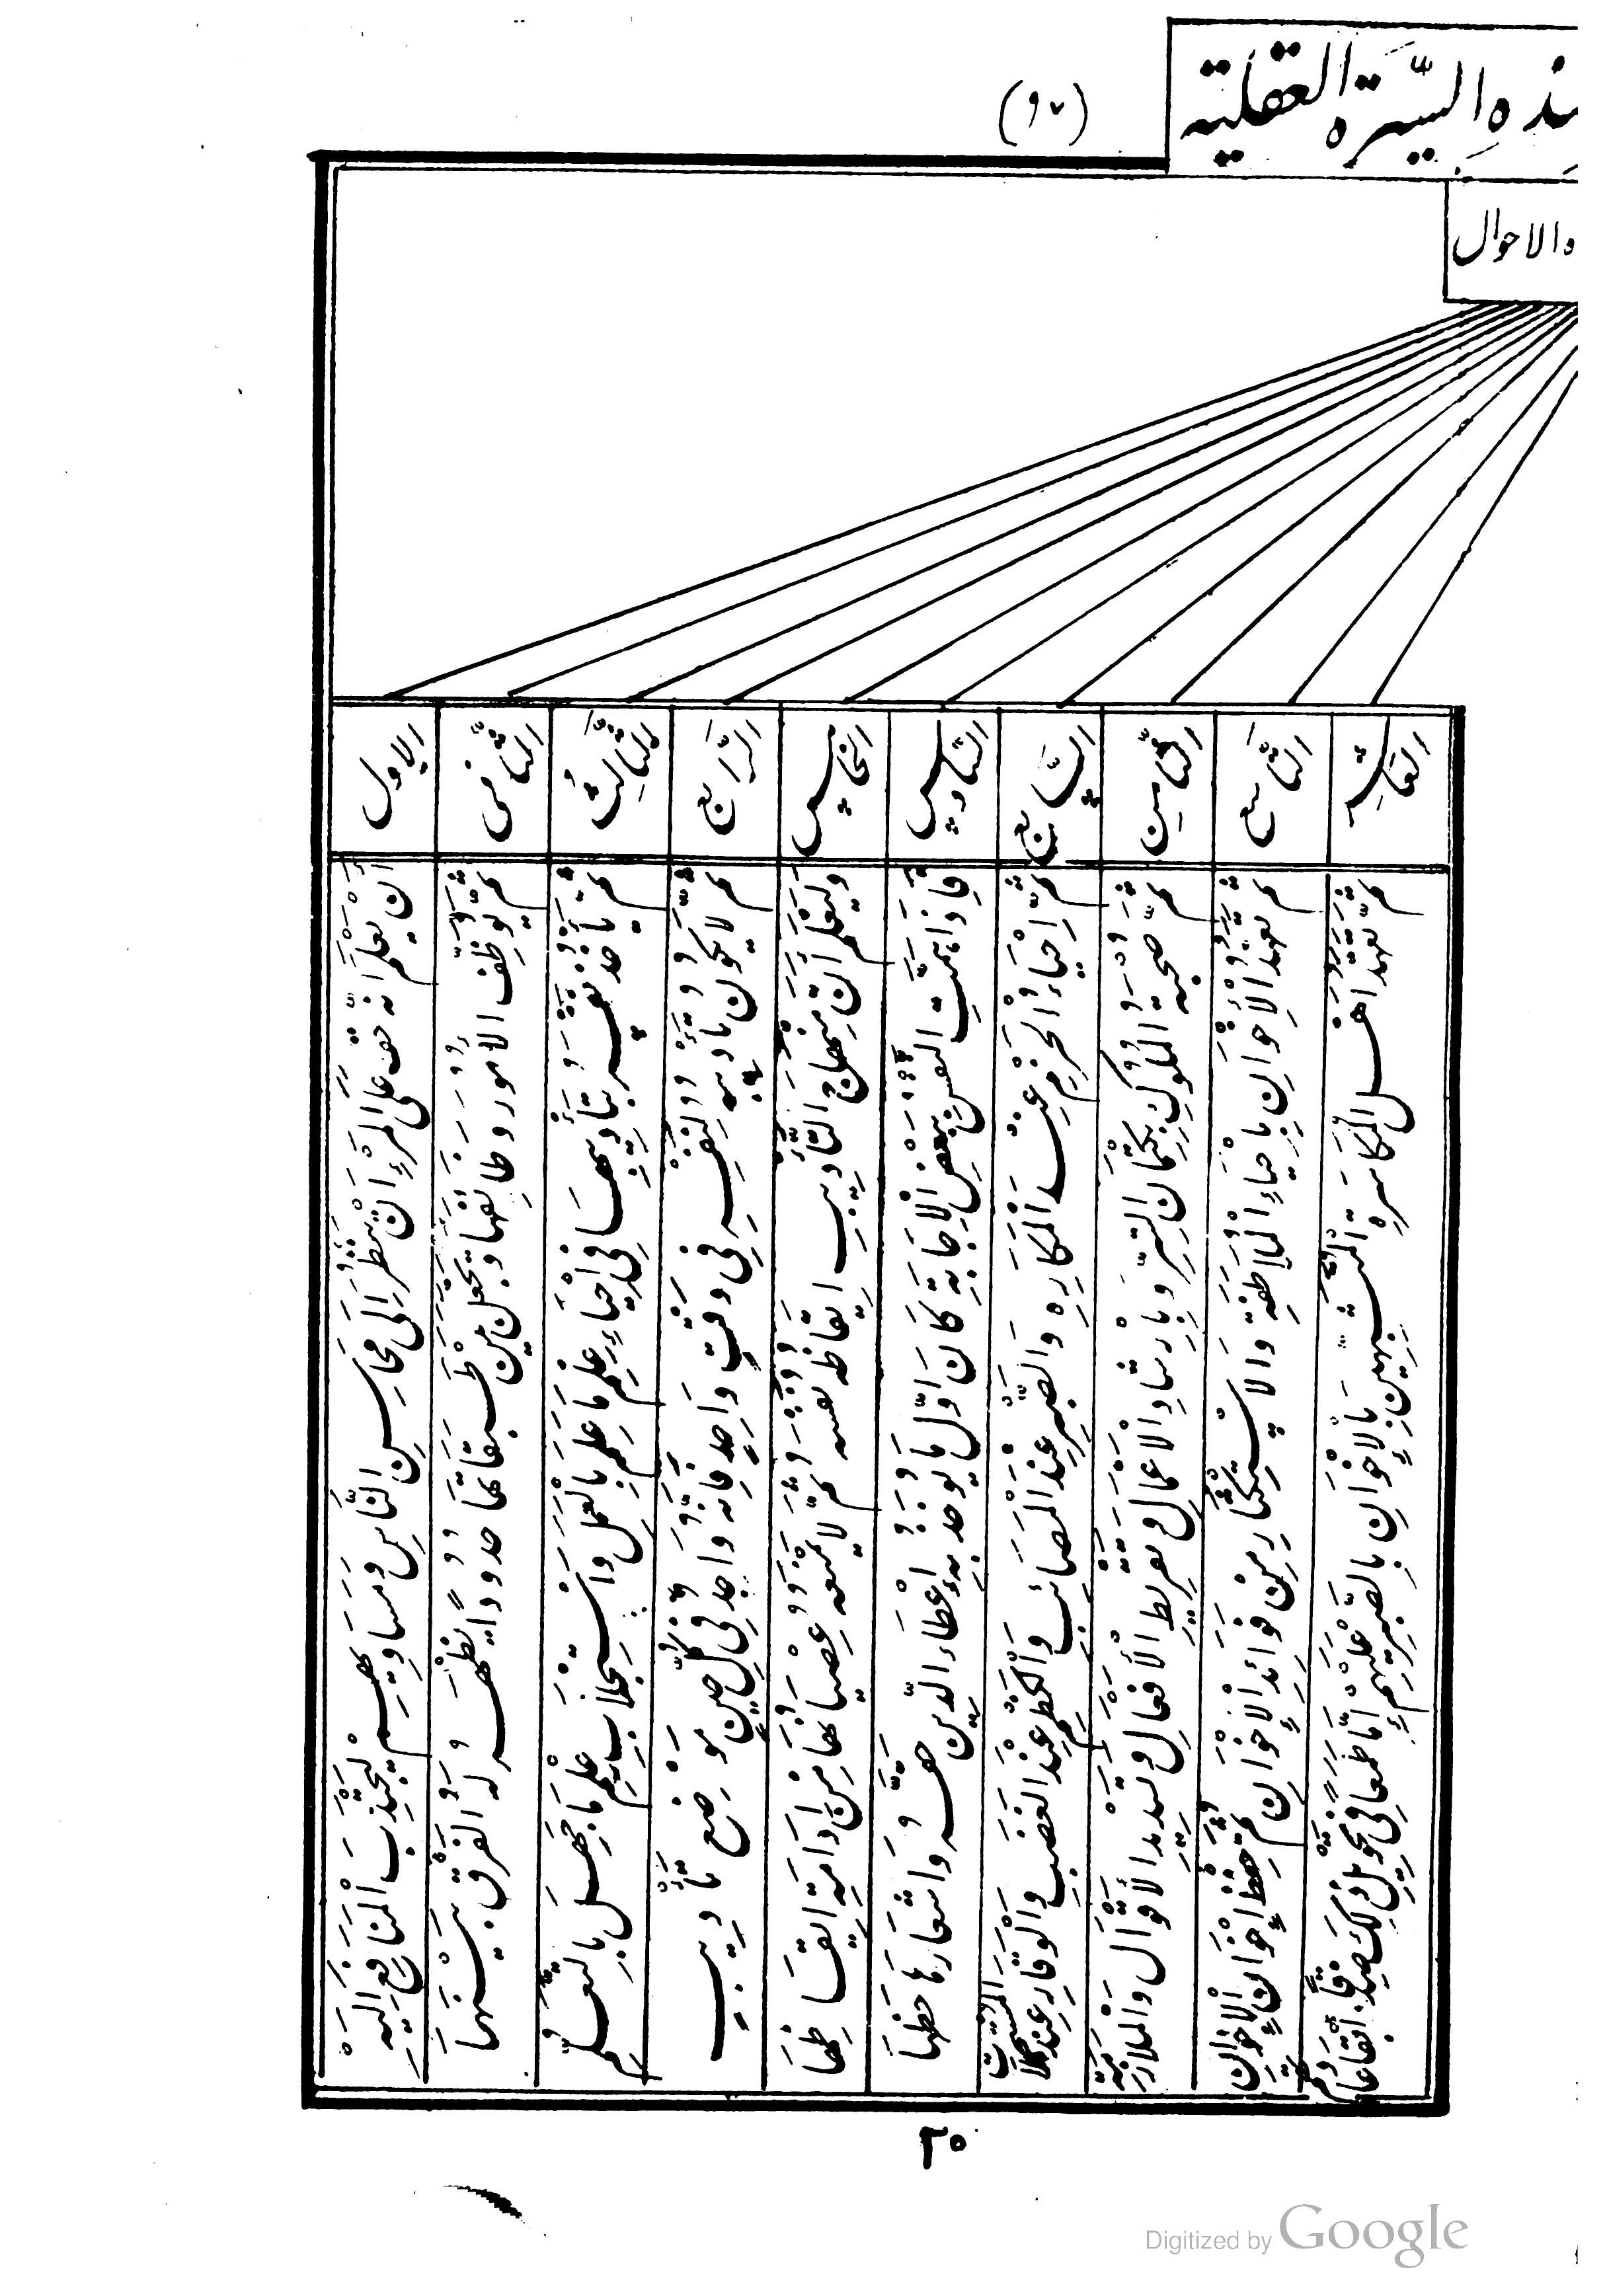 هذه السيرة العقلية
(٩٧)
والاحوال
الاول
أن يعلم انه حق على المرء ان ينظر الى محاسن الناس ومساويهم ليجتذب المنافع اليه
الثاني
ثم يوظف الامور وظائفها ويجعل من طبقاتها حدودا يظهر له الفرق بينهما
الثالث
ثم يأخذ نفسه بتأديبها في احياء علم ما علم بالعمل واستجلاب علم ما جهل بالتعلم
الرابع
ثم لا يكون تأديبه لنفسه في وقت واحد فانه واجد في كل حين موضع تأديب
الخامس
وليعلم أن منهاج التأديب ايقاظه نفسه ثم لا يمنعه عصيانها من ادامة ايقاظها
السادس
فاذا همت النفس ببعض الاجابة كان اول ما يؤخذ به اعطاء الدين حقه واشعارها حظها
السابع
ثم احياء الحزم عند المكاره والصبر عند المصائب والكظم عند الغضب والوقار عند المستجهلات
الثامن
ثم صحبة الملوك بكتمان السر وبارشاد الاعمال وتقريظ الافعال وتسديد الاقوال والملازمة
التاسع
ثم تعهد الاخوان باحياء الملاطفة والاستكثار من فوائد الاخوان ثم حفظ اخوان الاخوان
العاشر
ثم تعهد اهل المكاشرة المتشبهين بالاخوان بالصبر عليهم اما طمعا في تحويل ذلك صدقا
٢٥
Digitized by Google